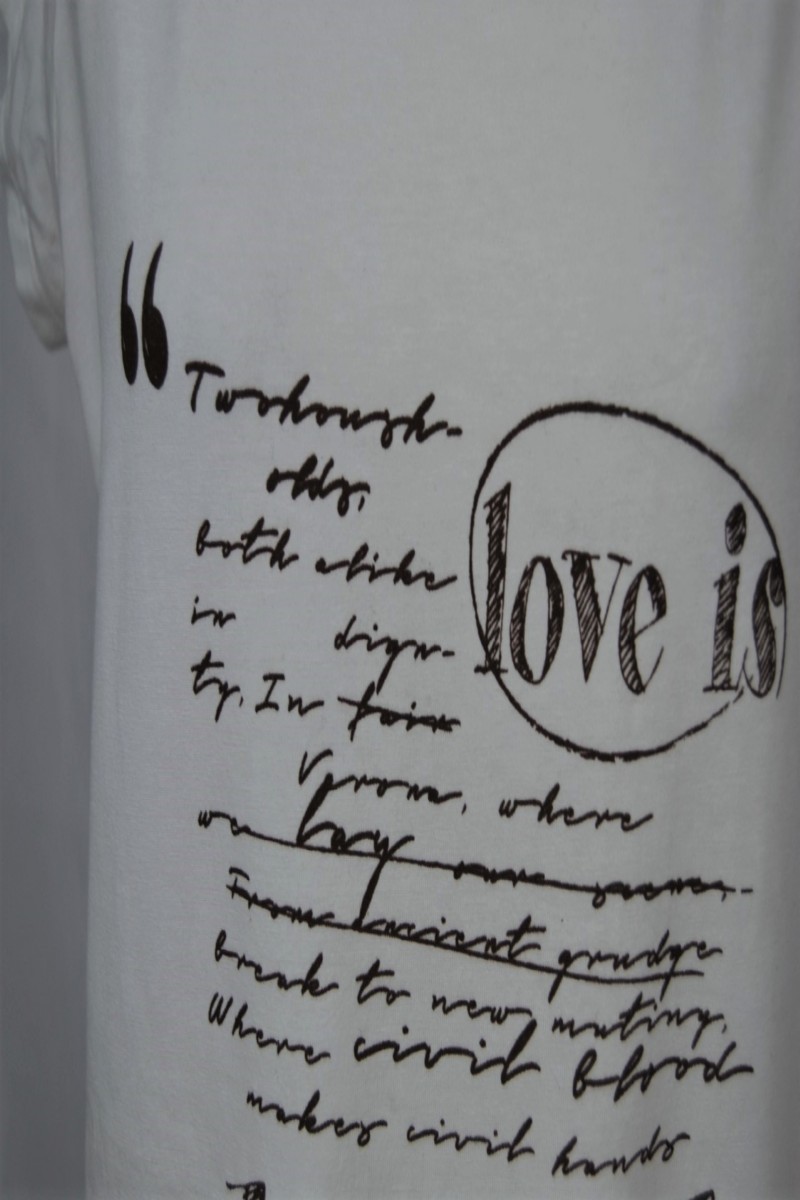 “ Twohough-
olds,
both alike
in dign-
ty. In fair
love is
Verona, where
we lay our scene,-
From ancient grudge
break to new mutiny,
Where civil blood
makes civil hands